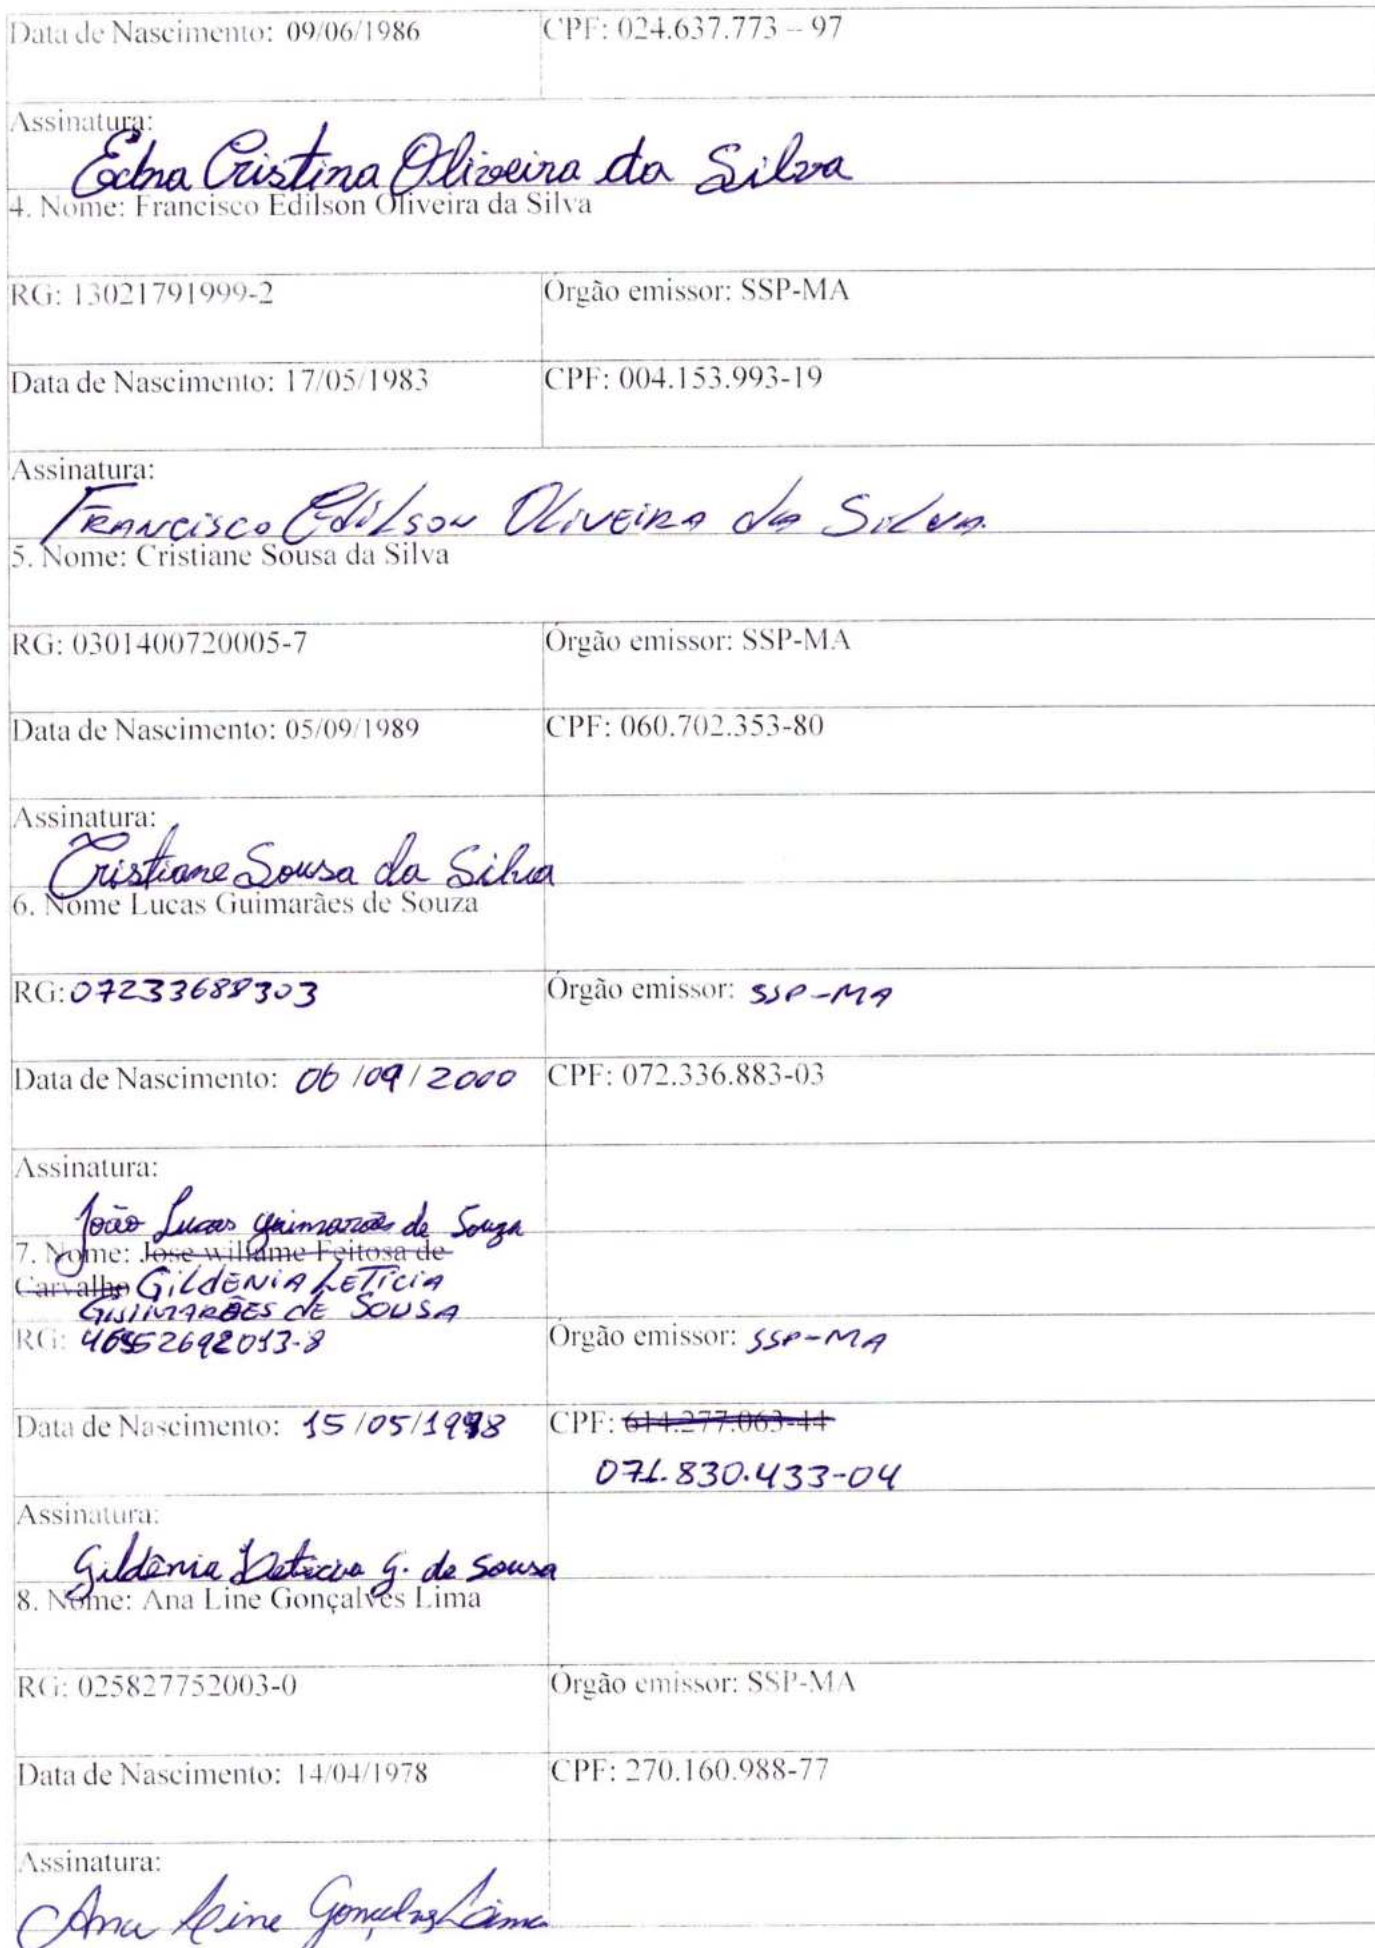 Data de Nascimento: 09/06/1986 CPF: 024.637.773 – 97
Assinatura:
Edna Cristina Oliveira da Silva
4. Nome: Francisco Edilson Oliveira da Silva
RG: 13021791999-2 Órgão emissor: SSP-MA
Data de Nascimento: 17/05/1983 CPF: 004.153.993-19
Assinatura:
Francisco Edilson Oliveira da Silva
5. Nome: Cristiane Sousa da Silva
RG: 0301400720005-7 Órgão emissor: SSP-MA
Data de Nascimento: 05/09/1989 CPF: 060.702.353-80
Assinatura:
Cristiane Sousa da Silva
6. Nome Lucas Guimarães de Souza
RG: 07233688303 Órgão emissor: SSP-MA
Data de Nascimento: 06/09/2000 CPF: 072.336.883-03
Assinatura:
João Lucas Guimarães de Souza
7. Nome: Jose willame Feitosa de
Carvalho GILDÊNIA LETÍCIA
GUIMARÃES DE SOUSA
RG: Órgão emissor: SSP-MA
Data de Nascimento: 15/05/1998 CPF: 614.277.063-44
071.830.433-04
Assinatura:
Gildênia Letícia G. de Sousa
8. Nome: Ana Line Gonçalves Lima
RG: 025827752003-0 Órgão emissor: SSP-MA
Data de Nascimento: 14/04/1978 CPF: 270.160.988-77
Assinatura:
Ana Line Gonçalves Lima